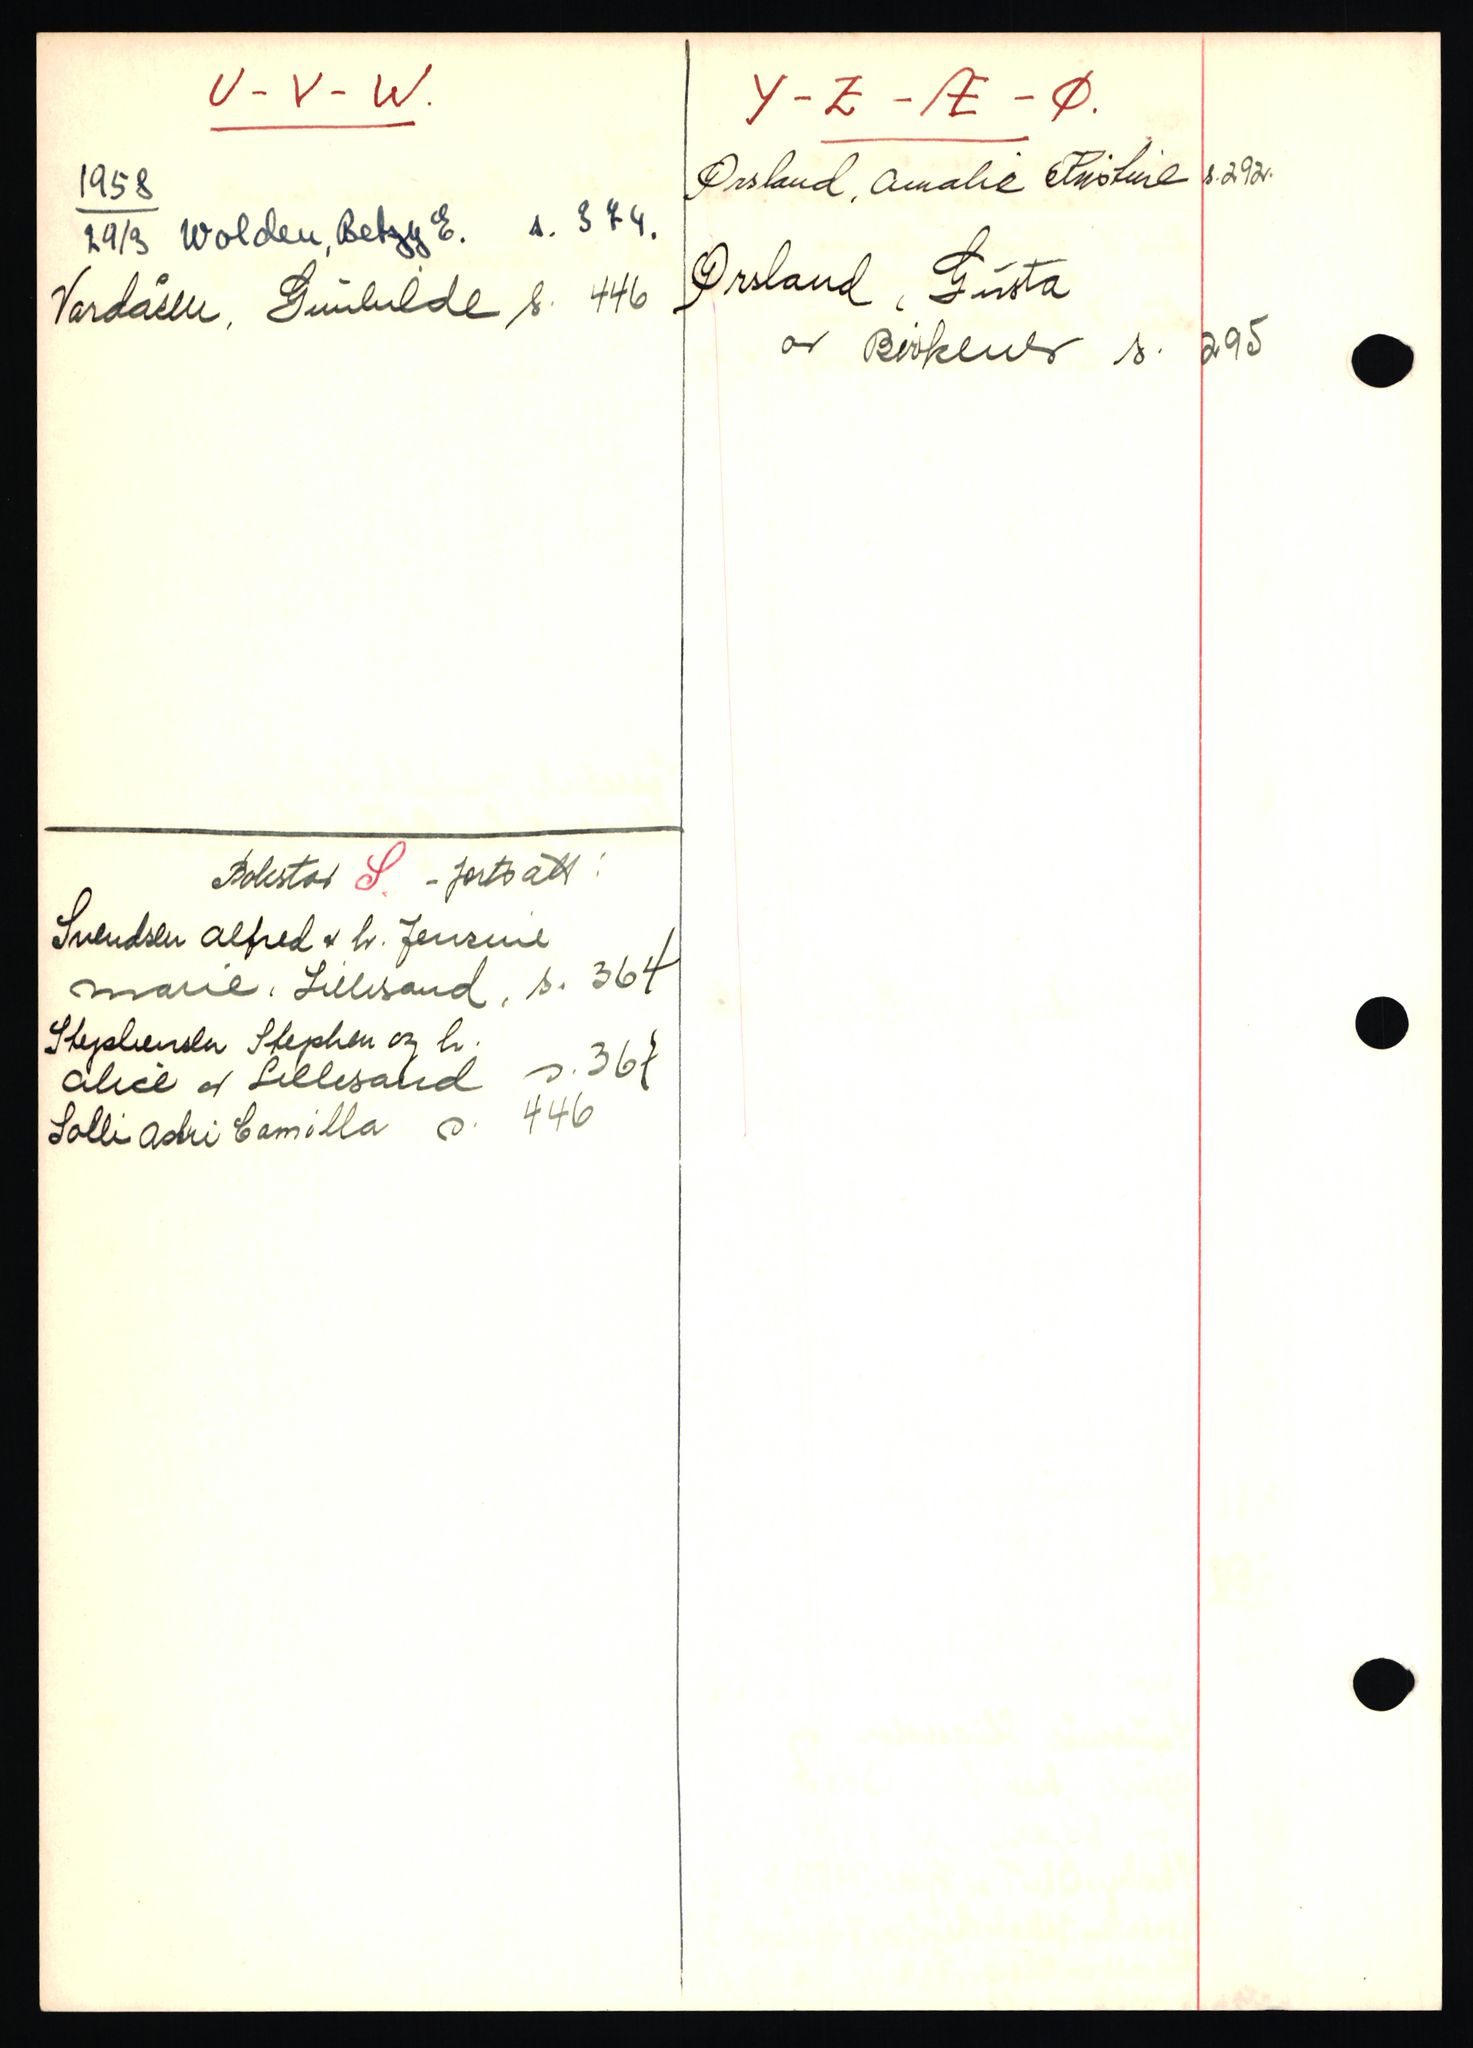 U - V - W.
1958
29/3 Wolden, Betzy E. s. 374.
Vardåsen, Gunhilde s. 446
Bokstav S. - fortsatt:
Svendsen Alfred & h. Jensine
Marie, Lillesand, s. 364
Stephensen Stephen og h.
Alice av Lillesand s. 367
Solli Adri Camilla s. 446
Y - Z - Æ - Ø.
Ørsland, Amalie Kristine s. 292.
Ørsland, Gusta
av Birkenes s. 295